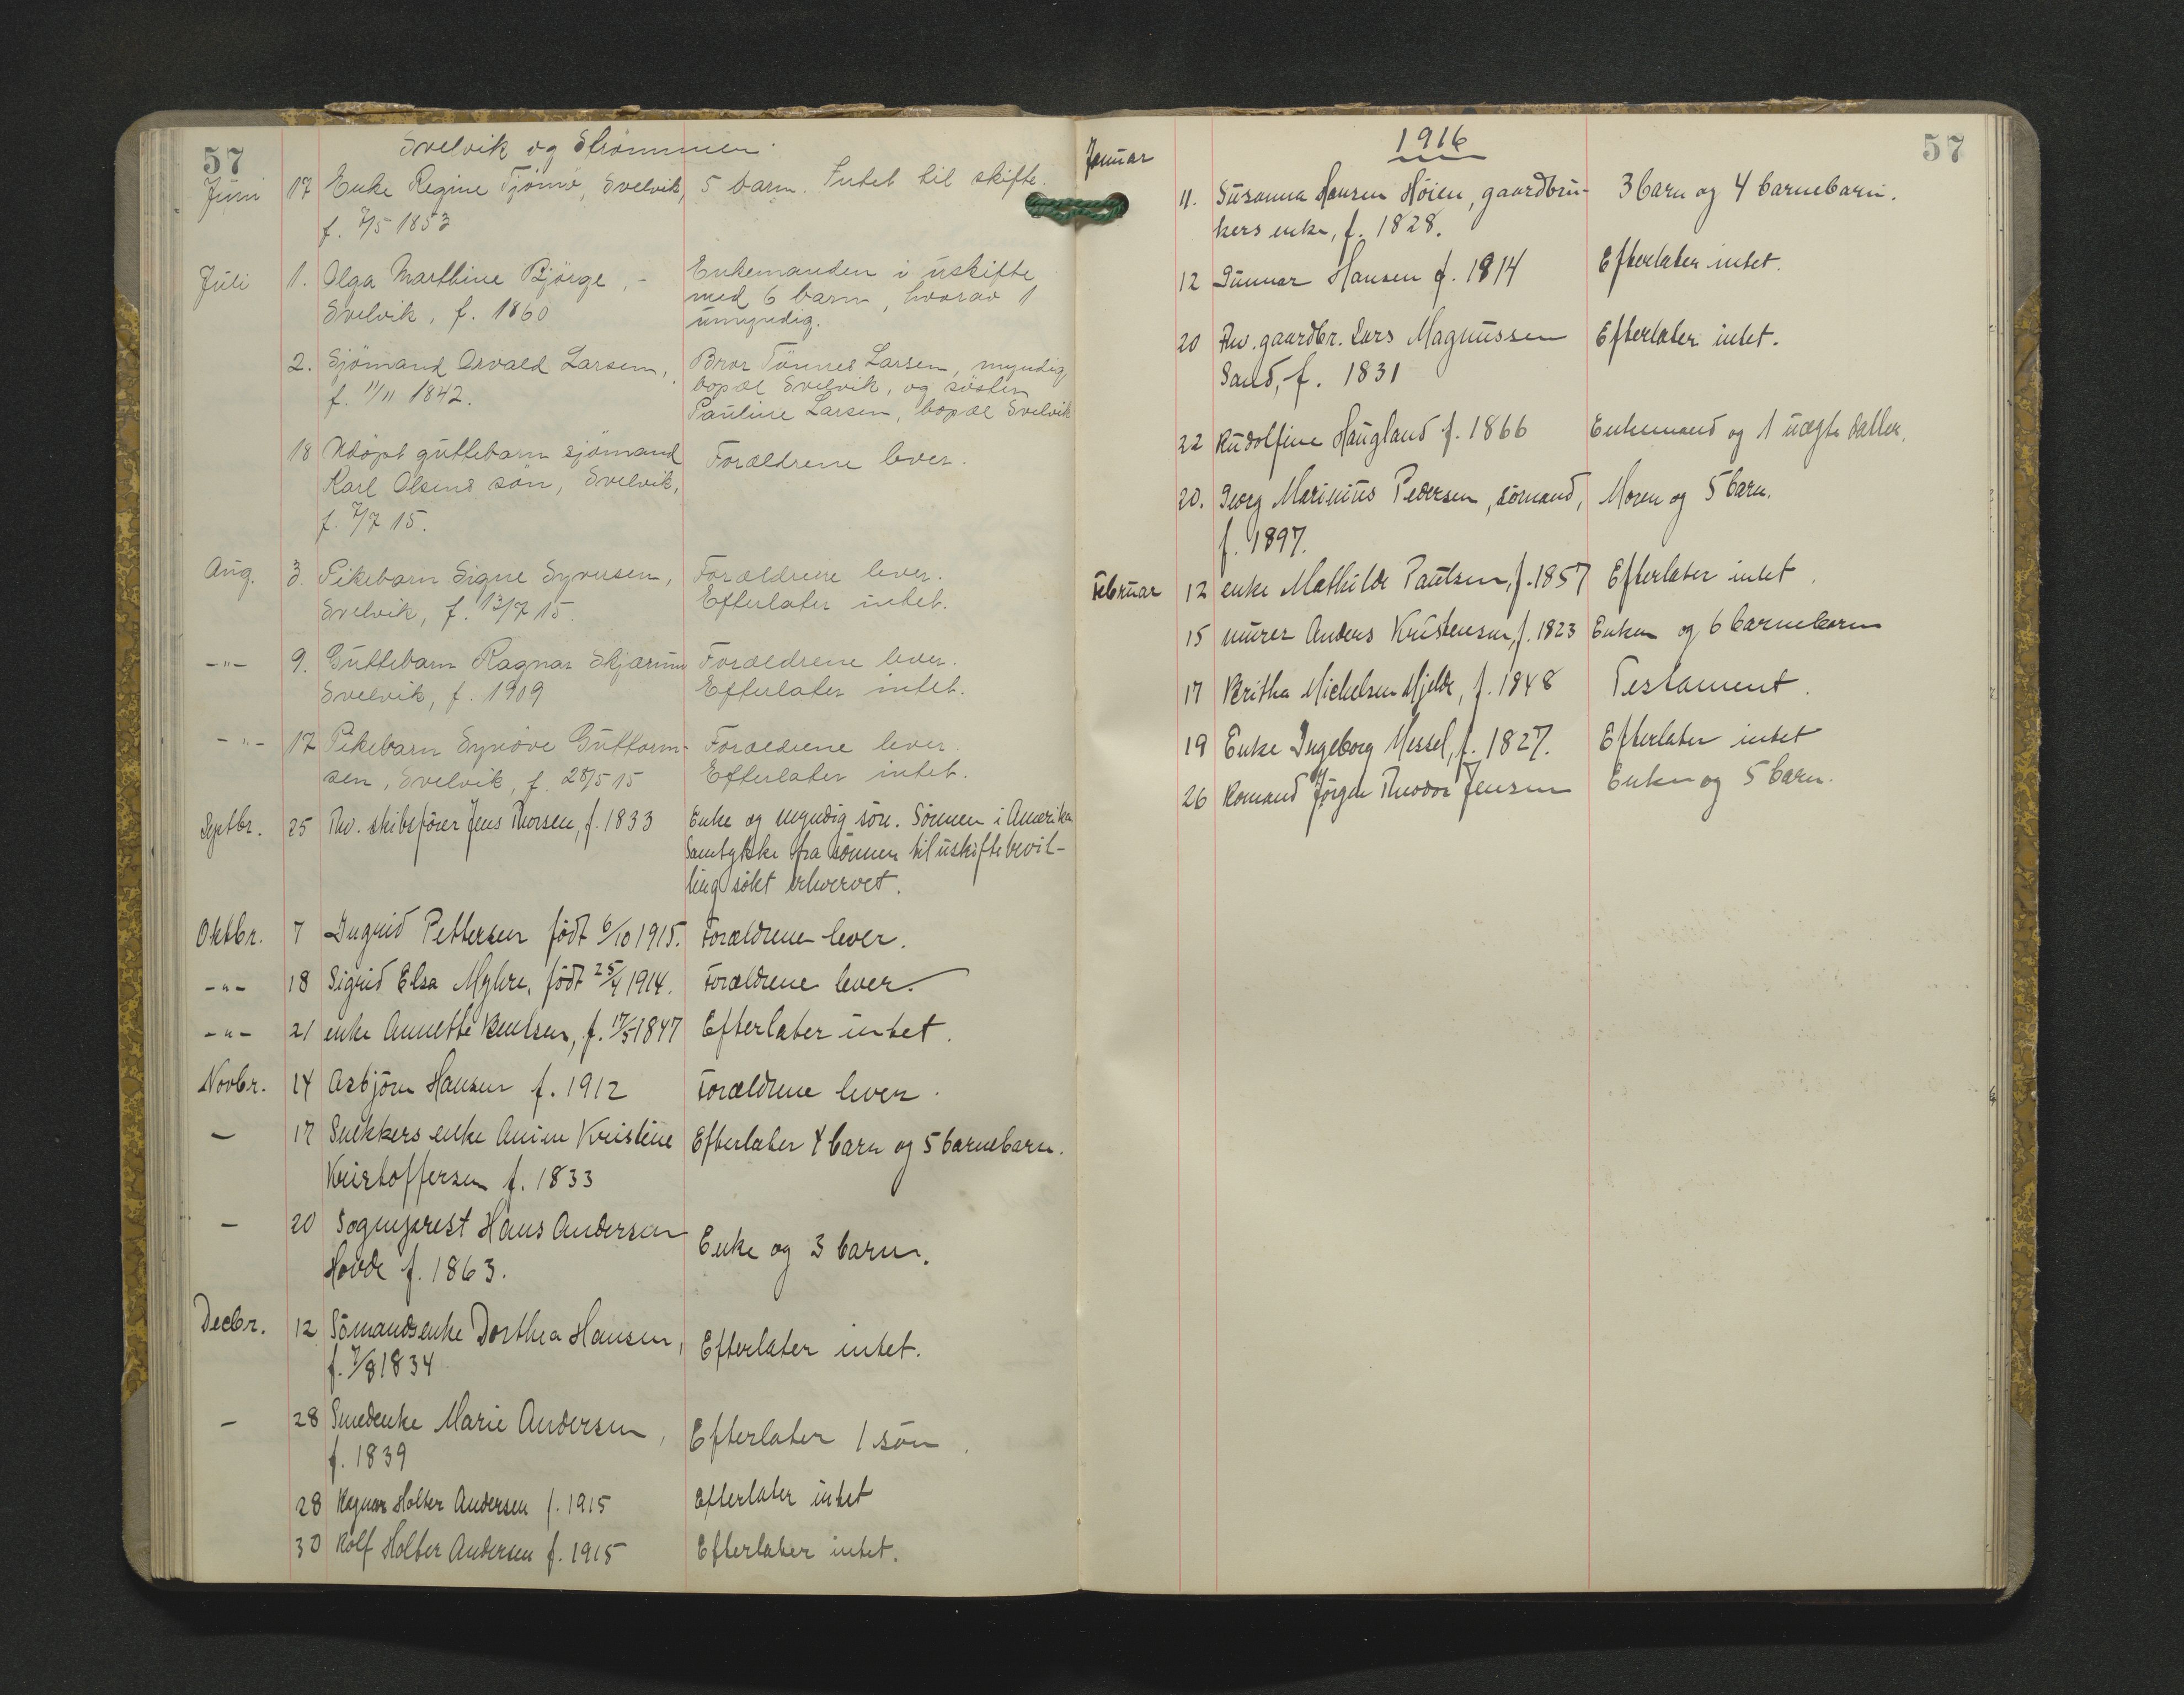 57
Svelvik og Strømmen.
Juni 17 Enke Regine Tjömö, Svelvik, 5 barn. Intet til skifte.
f. 7/5 1853
Juli 1. Olga Marthine Bjørge, - Enkemanden i uskifte
Svelvik, f. 1860 med 6 barn, hvorav 1
umyndig.
2. Sjömand Osvald Larsen, Bror Tönnes Larsen, myndig
f. 11/11 1842. bopæl Svelvik, og søster
Pauline Larsen, bopæl Svelvik
18 Udöpt guttebarn sjömand Forældrene lever.
Karl Olsens sön, Svelvik,
f. 7/7 15.
Aug. 3. Pikebarn Signe Syversen, Forældrene lever.
Svelvik, f. 13/7 15. Efterlater intet.
-"- 9. Guttebarn Ragnar Skjærum Forældrene lever.
Svelvik, f. 1909 Efterlater intet.
-"- 17 Pikebarn Synöve Guttorm- Forældrene lever.
sen, Svelvik, f. 28/5 15 Efterlater intet.
Septbr. 25 Fhv. skibsfører Jens Thorsen, f. 1833 Enke og myndig søn. Sønnen i Amerika
Samtykke fra sønnen til uskiftebevil-
ling søkt erhvervet.
Oktbr. 7 Ingrid Pettersen født 6/10 1915. Forældrene lever.
-"- 18 Sigrid Elsa Myhre, født 25/4 1914. Forældrene lever.
-"- 21 enke Annette Bentsen, f. 17/5 1847 Efterlater intet.
Novbr. 14 Asbjörn Hansen f. 1912 Forældrene lever.
- 17 Snekkers enke Anine Kristine Efterlater 4 barn og 5 barnebarn.
Kristoffersen f. 1833
- 20 Sogneprest Hans Andersen Enke og 3 barn.
Hovde f. 1863.
Decbr. 12 Sömandsenke Dorthea Hansen, Efterlater intet.
f. 7/8 1834
- 28 Smedenke Marie Andersen, Efterlater 1 sön.
f. 1839
28 Ragnar Holter Andersen f. 1915 Efterlater intet
30 Rolf Holter Andersen f. 1915 Efterlater intet.
1916
57
Januar
11. Susanna Hansen Höien, gaardbru- 3 barn og 4 barnebarn.
kers enke, f. 1828.
12 Gunnar Hansen f. 1814 Efterlater intet.
20 Fhv. gaardbr. Lars Magnussen Efterlater intet.
Sand, f. 1831
22 Rudolfine Haugland f. 1866 Enkemand og 1 uægte datter.
20. Georg Marinius Pedersen, sömand, Moren og 5 barn.
f. 1897.
Februar 12 enke Mathilde Paulsen, f. 1857 Efterlater intet.
15 murer Anders Kristensen, f. 1823 Enken og 6 barnebarn
17 Britha Michelsen Mjelde, f. 1848 Testament.
19 Enke Ingeborg Messel, f. 1827. Efterlater intet
26 Romand Jörgen Theodor Jensen Enken og 5 barn.